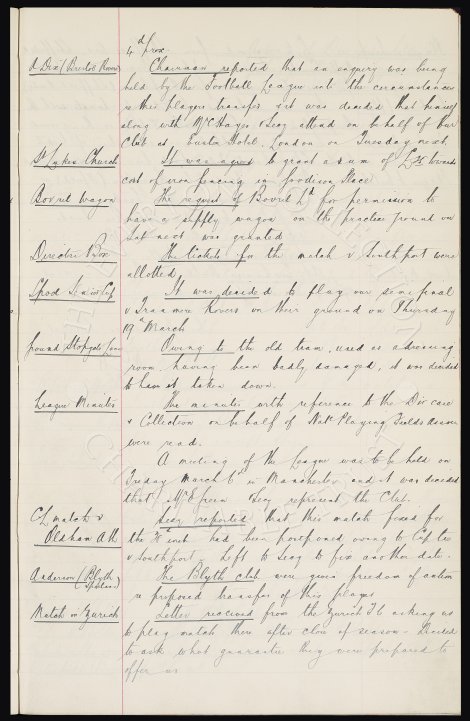 4th prox.
A Dix (Bristol Rovers) Chairman reported that an enquiry was being
held by the Football League into the circumstances
re this players transfer & it was decided that himself
along with Mr & Secy attend on behalf of the
Club at Euston Hotel, London on Tuesday next.
St Lukes Church It was agreed to grant a sum of towards
cost of iron fencing in Goodison Place
Bovril Wagon The request of Bovril Ld for permission to
have a supply wagon on the practice ground on
Sat next was granted
Directors Box The tickets for the match v Southport were
allotted.
Lpool Senior Cup It was decided to play our semi final
v Tranmere Rovers on their ground on Thursday
19th March
Ground Stopgate Lane Owing to the old tram, used as a dressing
room having been badly damaged, it was decided
to have it taken down.
League Minutes The minutes with reference to the Dix case
& Collection on behalf of Natl Playing Fields Assocn
were read.
A meeting of the League was to be held on
Friday March 6th in Manchester and it was decided
that Mr Green & Secy represent the Club.
CL match v Secy reported that this match fixed for
Oldham Ath the inst had been postponed owing to Cup tie
v Southport. Left to Secy to fix another date.
Anderson (Blyth Spartans) The Blyth club were given freedom of action
re proposed transfer of this player
Match in Zurich Letter received from the Zurich F.C. asking us
to play match there after close of season - Decided
to ask what guarantee they were prepared to
offer us